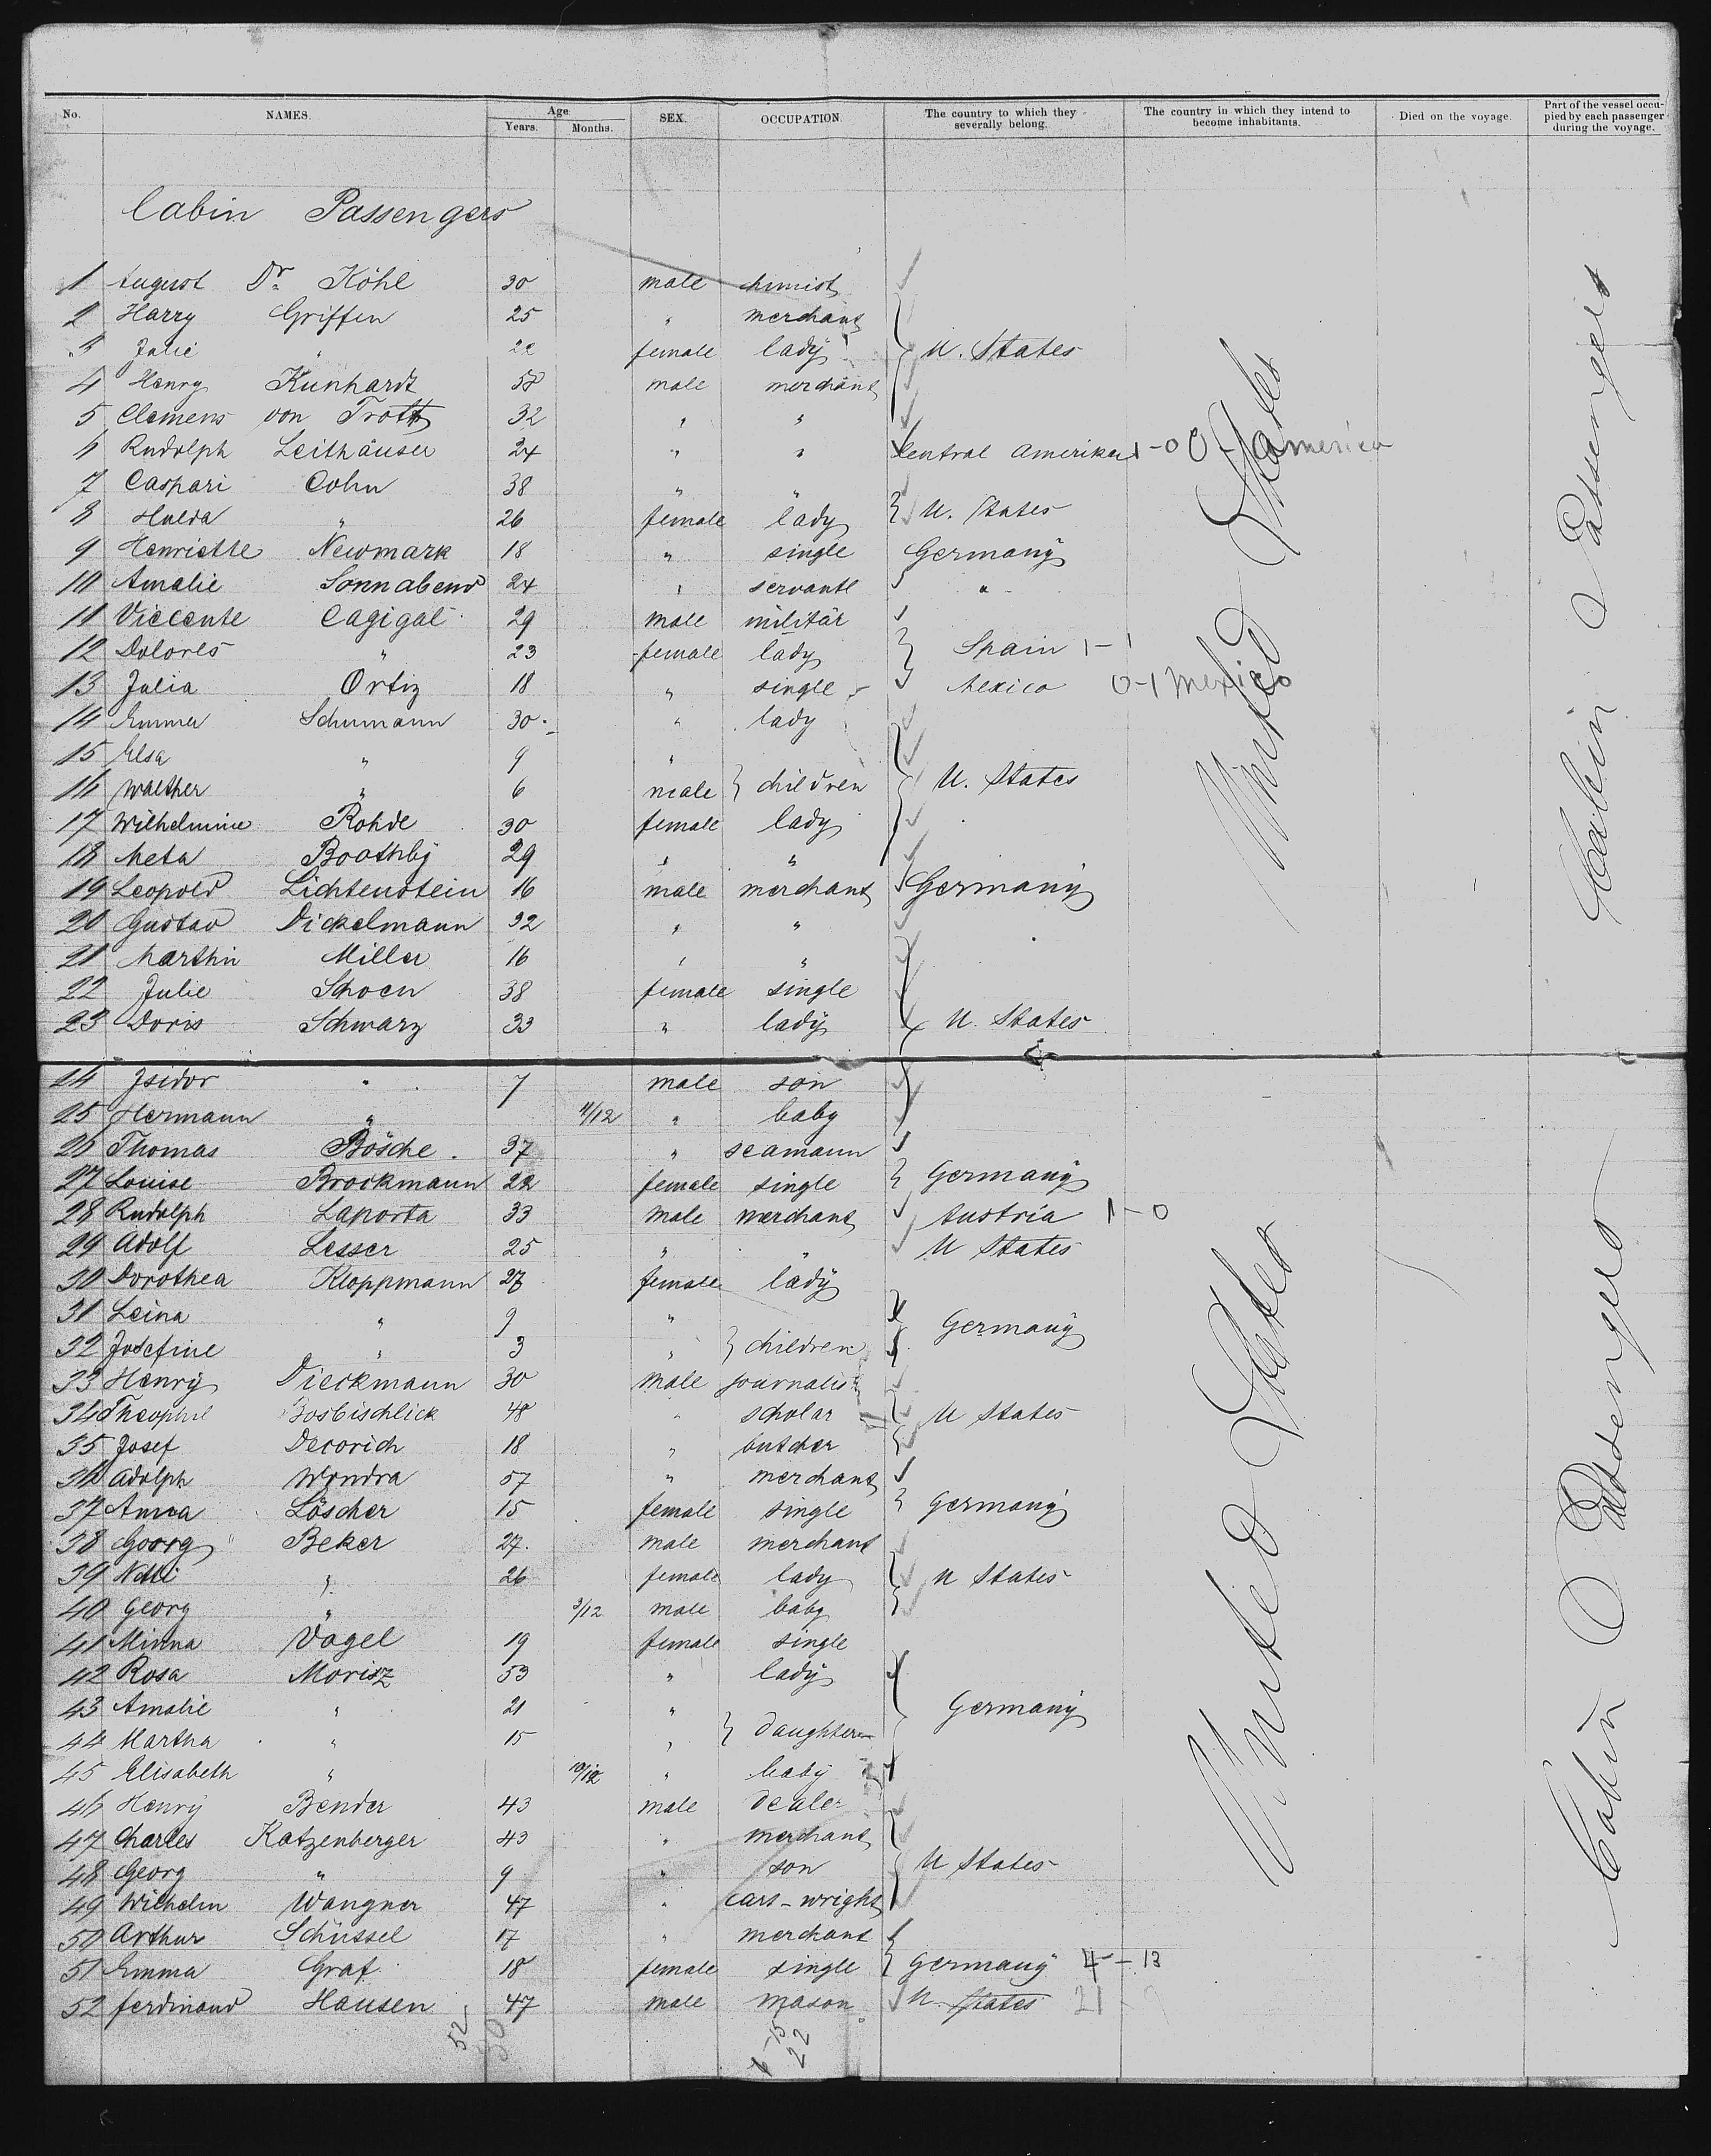 No. NAMES. Age. SEX. OCCUPATION. The country to which they severally belong. The country in which they intend to become inhabitants. Died on the voyage. Part of the vessel occupied by each passenger during the voyage.
Years. Months.
Cabin Passengers
1 August Dr. Köhl 30 male chimist
2 Harry Griffen 25 " merchant
3 Julie " 22 female lady U. States
4 Henry Kunhardt 58 male merchant
5 Clemens von Trott 32 " "
6 Rudolph Leithäuser 24 " " Central Amerika 1-0 0- America
7 Caspari Cohn 38 " "
8 Hulda " 26 female lady U. States
9 Henriette Newmark 18 " single Germany
10 Amalie Sonnabend 24 " servante "
11 Viccente Cagigal 29 male militär
12 Dolores " 23 female lady Spain 1-1
13 Julia Ortiz 18 " single Mexico 0-1 Mexico
14 Emma Schumann 30 " lady
15 Elsa " 9 "
16 Walther " 6 male } children U. States
17 Wilhelmine Rohde 30 female lady
18 Meta Boothby 29 " "
19 Leopold Lichtenstein 16 male merchant Germany
20 Gustav Dickelmann 32 " "
21 Marthin Miller 16 " "
22 Julie Schoen 38 female single
23 Doris Schwarz 33 " lady U. States
24 Isidor " 7 male son
25 Hermann " 11/12 " baby
26 Thomas Bösche 37 " seamann
27 Louise Brockmann 22 female single Germany
28 Rudolph Laporta 33 male merchant Austria 1-0
29 Adolf Lesser 25 " " U States
30 Dorothea Kloppmann 27 female lady
31 Leina " 9 " Germany
32 Josefine " 3 " } children
33 Henry Dieckmann 30 male journalist
34 Theophil Bosbischlick 48 " scholar U States
35 Josef Decorich 18 " butcher
36 Adolph Wondra 57 " merchant
37 Anna Löscher 15 female single Germany
38 Georg Beker 27 male merchant
39 Netti " 26 female lady U States
40 Georg " 3/12 male baby
41 Minna Vogel 19 female single
42 Rosa Morisz 53 " lady
43 Amalie " 21 " Germany
44 Martha " 15 " } daughter
45 Elisabeth " 10/12 " baby
46 Henry Bender 43 male dealer
47 Charles Katzenberger 43 " merchant
48 Georg " 9 " son U States
49 Wilhelm Wangner 47 " cart-wright
50 Arthur Schüssel 17 " merchant
51 Emma Graf 18 female single Germany 4-13
52 Ferdinand Hausen 47 male mason U. States 21
52
22
United States
United States
Cabin Passengers
Cabin Passengers